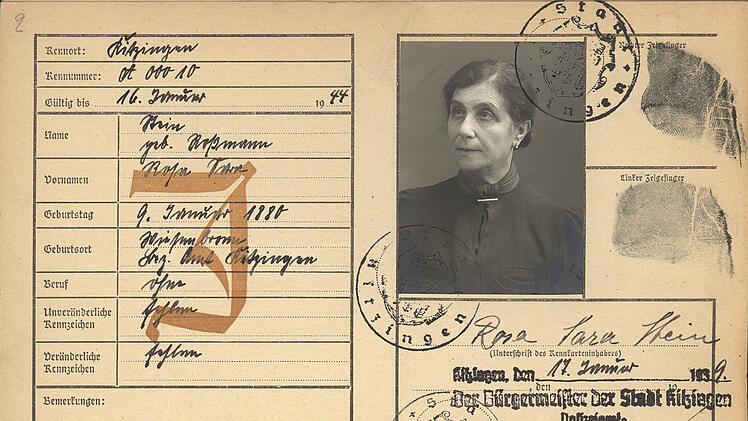 2
Kennort: Kitzingen
Kennummer: A 00010
Gültig bis 16. Januar 1944
Name Stein
geb. Roßmann
Vornamen Rosa Sara
Geburtstag 9. Januar 1880
Geburtsort Wiesenbronn
Bez. Amt Kitzingen
Beruf ohne
Unveränderliche
Kennzeichen fehlen
Veränderliche
Kennzeichen fehlen
Bemerkungen:
J
Stadt
Kitzingen
Rechter Zeigefinger
Linker Zeigefinger
Kitzingen
Rosa Sara Stein
(Unterschrift des Kennkarteninhabers)
Kitzingen, den 17. Januar 1939.
den
Der Bürgermeister der Stadt Kitzingen
Polizeiamt.